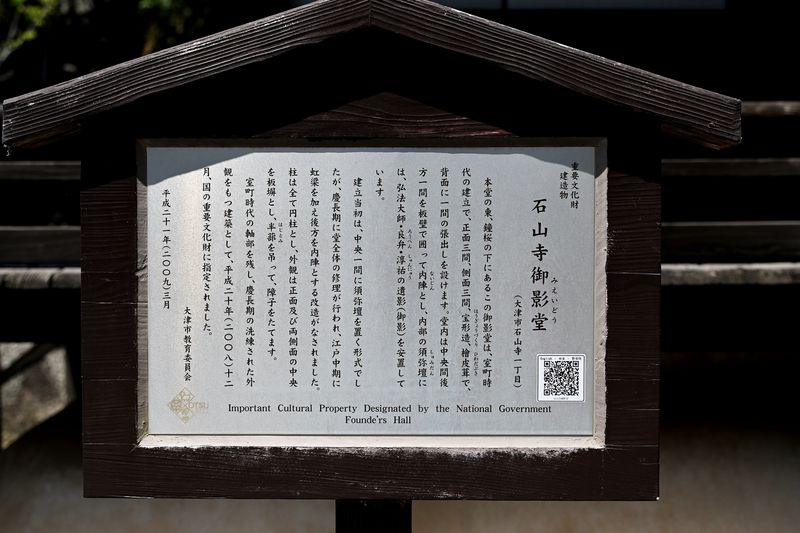 重要文化財
建造物
石山寺御影堂
みえいどう
(大津市石山寺一丁目)
本堂の東、鐘桜の下にあるこの御影堂は、室町時
代の建立で、正面三間、側面三間、宝形造、檜皮葺で、
ほうぎょうづくり ひわだぶき
背面に一間の張出しを設けます。堂内は中央間後
方一間を板壁で囲って内陣とし、内部の須弥壇に
ないじん しゅみだん
は、弘法大師・良弁・淳祐の遺影(御影)を安置して
ろうべん しゅんにゅう
います。
建立当初は、中央一間に須弥壇を置く形式でし
たが、慶長期に堂全体の修理が行われ、江戸中期に
虹梁を加え後方を内陣とする改造がなされました。
柱は全て円柱とし、外観は正面及び両側面の中央
を板塀とし、半蔀を吊って、障子をたてます。
はじとみ
室町時代の軸部を残し、慶長期の洗練された外
観をもつ建築として、平成二十年(二〇〇八)十二
月、国の重要文化財に指定されました。
平成二十一年(二〇〇九)三月
大津市教育委員会
OTSU
Important Cultural Property Designated by the National Government
Founde'rs Hall